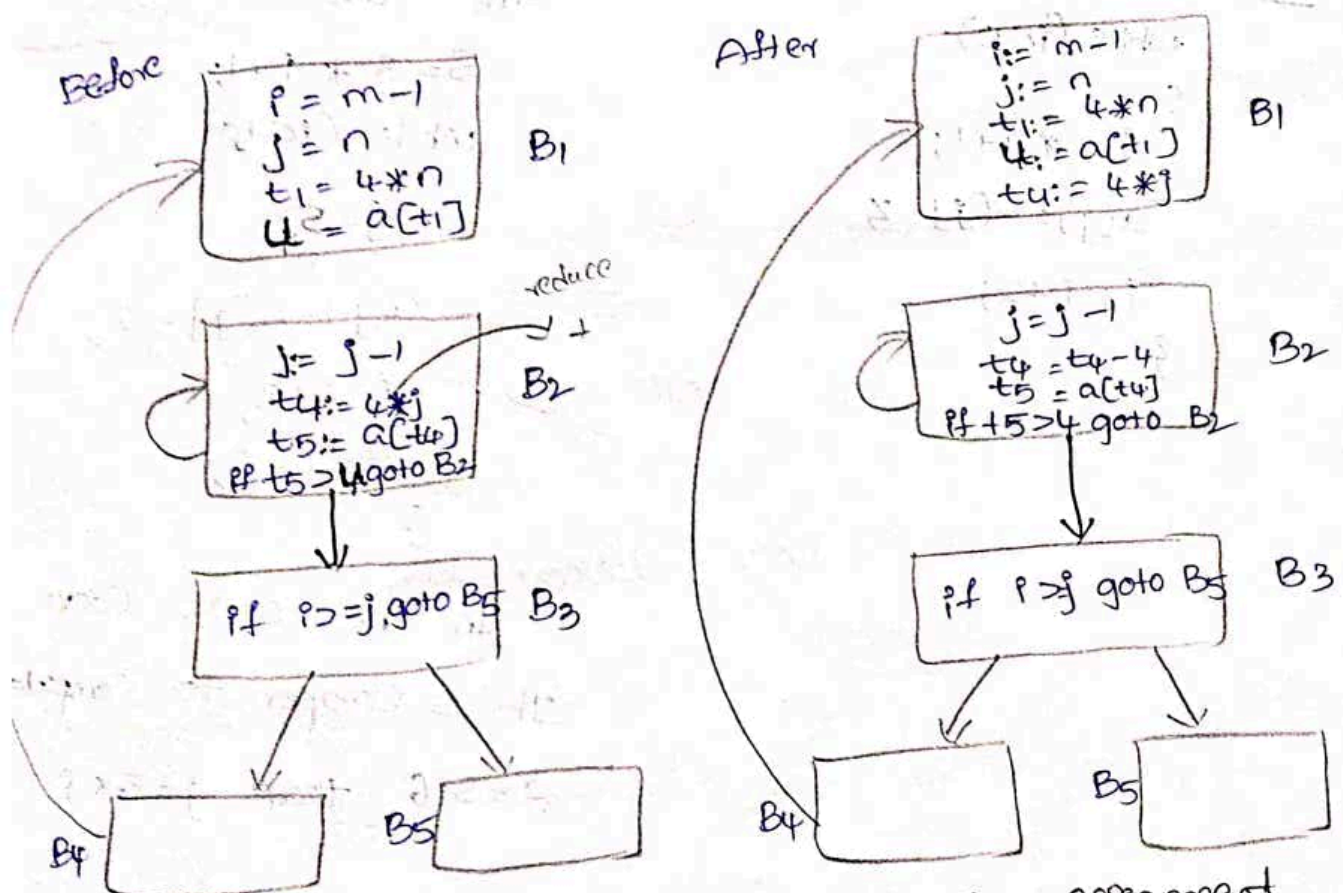 Before
i = m-1
j = n
t1 = 4*n
u = a[t1]
B1
reduce
j:= j-1
t4:= 4*j
t5:= a[t4]
if t5>u goto B2
B2
if i>=j, goto B5
B3
B4
B5
After
i:= m-1
j:= n
t1:= 4*n
u:= a[t1]
t4:= 4*j
B1
j=j-1
t4 = t4-4
t5 = a[t4]
if t5>4 goto B2
B2
if i>j goto B5
B3
B4
B5